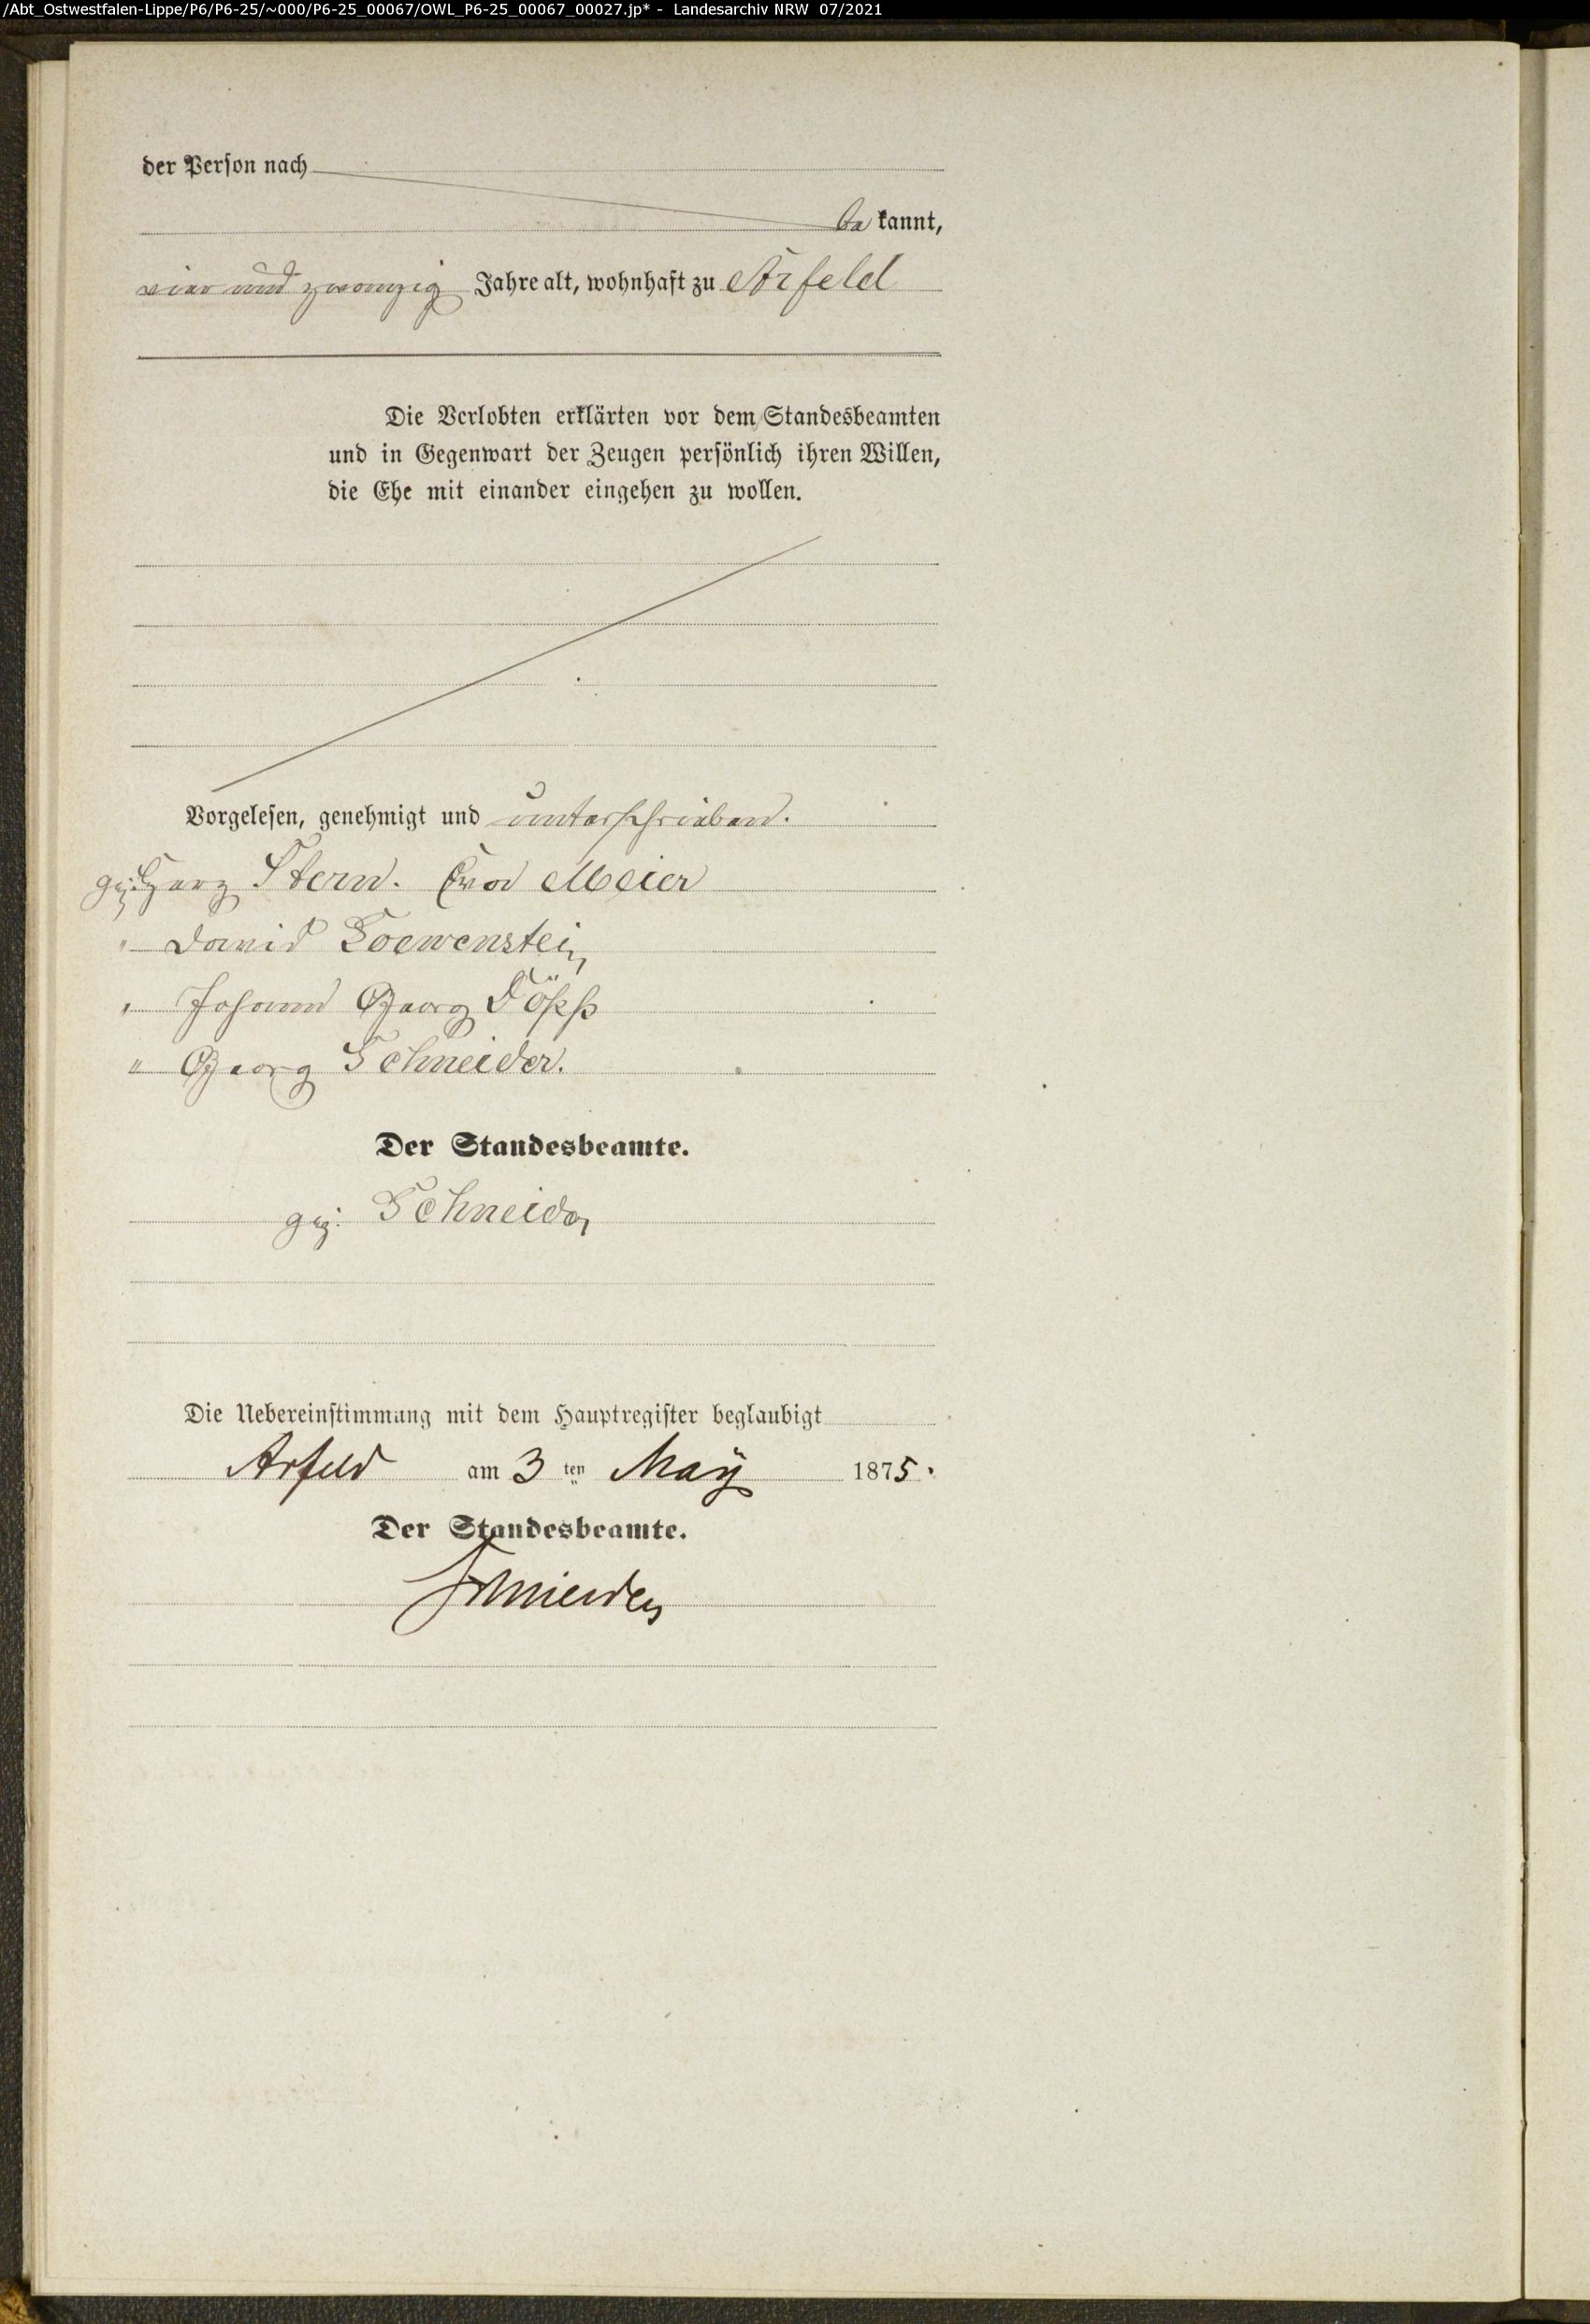 /Abt_Ostwestfalen-Lippe/P6/P6-25/~000/P6-25_00067/OWL_P6-25_00067_00027.jp* - Landesarchiv NRW 07/2021
der Person nach
be kannt,
vier und zwanzig Jahre alt, wohnhaft zu Arfeld
Die Verlobten erklärten vor dem Standesbeamten
und in Gegenwart der Zeugen persönlich ihren Willen,
die Ehe mit einander eingehen zu wollen.
Vorgelesen, genehmigt und unterschrieben.
gez. Herz Stern. Eva Meier
" David Loewenstein
" Johann Georg Döpp
" Georg Schneider.
Der Standesbeamte.
gez. Schneider
Die Uebereinstimmung mit dem Hauptregister beglaubigt
Arfeld am 3 ten May 1875.
Der Standesbeamte.
Schneider